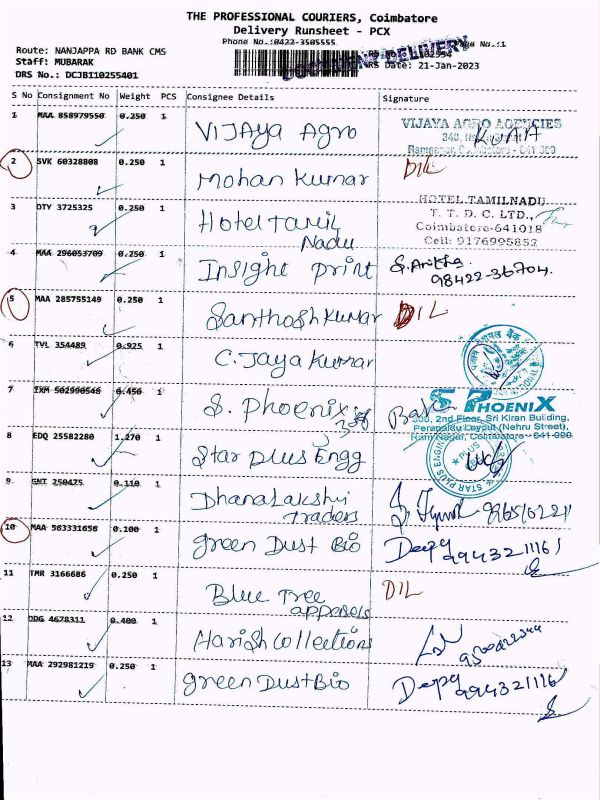 THE PROFESSIONAL COURIERS, Coimbatore
Delivery Runsheet - PCX
Phone No.:0422-3505555
Page No.:1
Route: NANJAPPA RD BANK CMS
Staff: MUBARAK
DRS No.: DCJB110255401
DRS Date: 21-Jan-2023
DELIVERY
S No Consignment No Weight PCS Consignee Details Signature
1 MAA 858979550 0.250 1 Vijaya Agro
VIJAYA AGRO AGENCIES
2 SVK 60328808 0.250 1 Mohan Kumar DIL
3 OTY 3725325 0.250 1 Hotel Tamil Nadu
HOTEL TAMILNADU
T. T. D. C. LTD.,
Coimbatore-641018
Cell: 9176995852
4 MAA 296053709 0.250 1 Insight print S. Anitha
98422-36704.
5 MAA 285755149 0.250 1 Santhosh Kumar DIL
6 TVL 354489 0.925 1 C. Jaya Kumar
7 IXM 502990546 0.450 1 S. Phoenix
PHOENIX
330, 2nd Floor, Sri Kiran Building,
Perumalu Layout (Nehru Street),
Ram Nagar, Coimbatore - 641 009
8 EDQ 25582280 1.270 1 Star plus Engg
STAR PLUS
9 GNT 250475 0.110 1 Dhanalakshi traders
10 MAA 563331656 0.100 1 green Dust Bio Deepa
9943211161
11 TMR 3166686 0.250 1 Blue Tree apparels DIL
12 ODG 4678311 0.400 1 Harish collections
13 MAA 292981219 0.250 1 green Dust Bio Deepa
9943211161